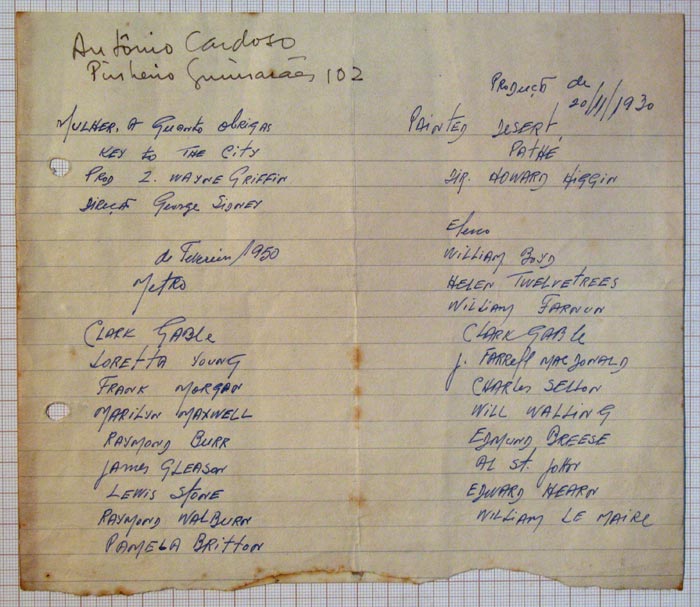 Antônio Cardoso
Pinheiro Guimarães 102
Mulher, A Quanto Obrigas
Key to The City
Prod Z. Wayne Griffin
Direção George Sidney
de Fevereiro/1950
Metro
Clark Gable
Loretta Young
Frank Morgan
Marilyn Maxwell
Raymond Burr
James Gleason
Lewis Stone
Raymond Walburn
Pamela Britton
Produção de
20/11/1930
Painted Desert,
Pathé
Dir. Howard Higgin
Elenco
William Boyd
Helen Twelvetrees
William Farnun
Clark Gable
J. Farrell MacDonald
Charles Sellon
Will Walling
Edmund Breese
Al St. John
Edward Hearn
William Le Maire